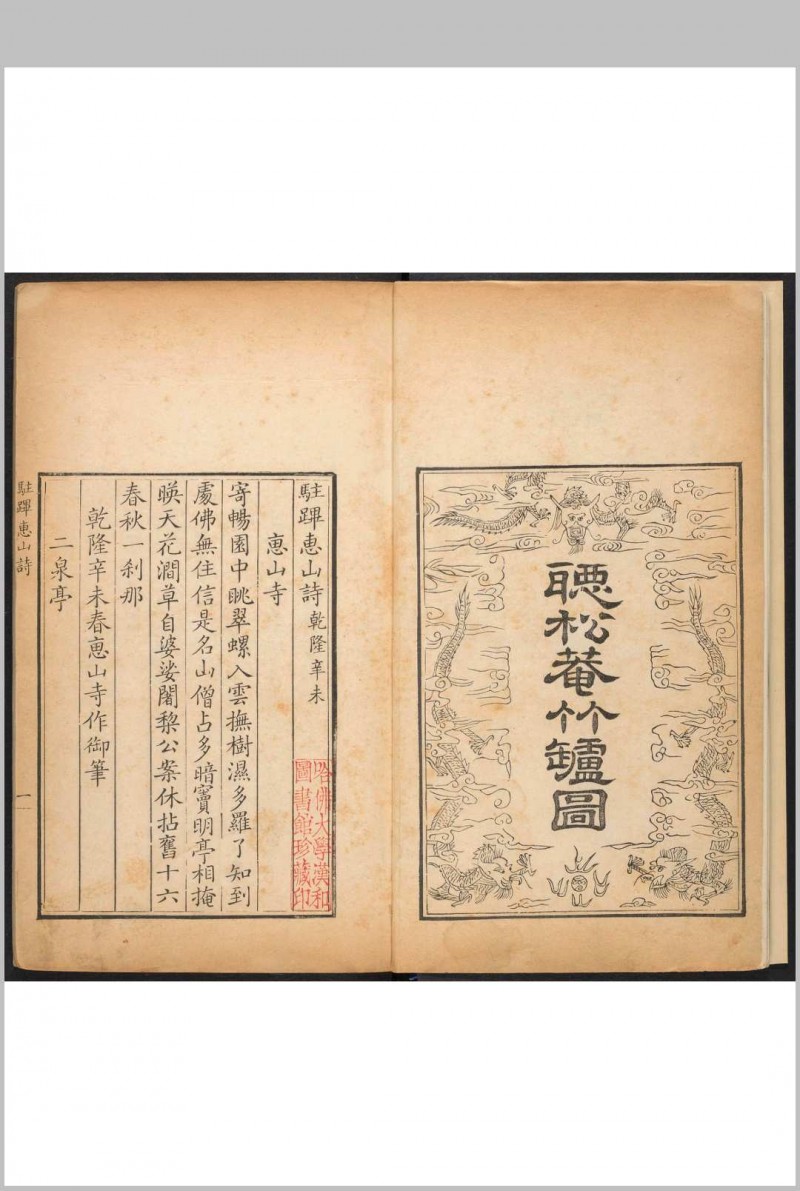 聽松菴竹罏圖
駐蹕惠山詩乾隆辛未
惠山寺
寄暢園中眺翠螺入雲撫樹濕多羅了知到
處佛無住信是名山僧占多暗竇明亭相掩
暎天花澗草自婆娑闍黎公案休拈舊十六
春秋一剎那
乾隆辛未春惠山寺作御筆
二泉亭
駐蹕惠山詩
一
哈佛大學漢和
圖書館珍藏印